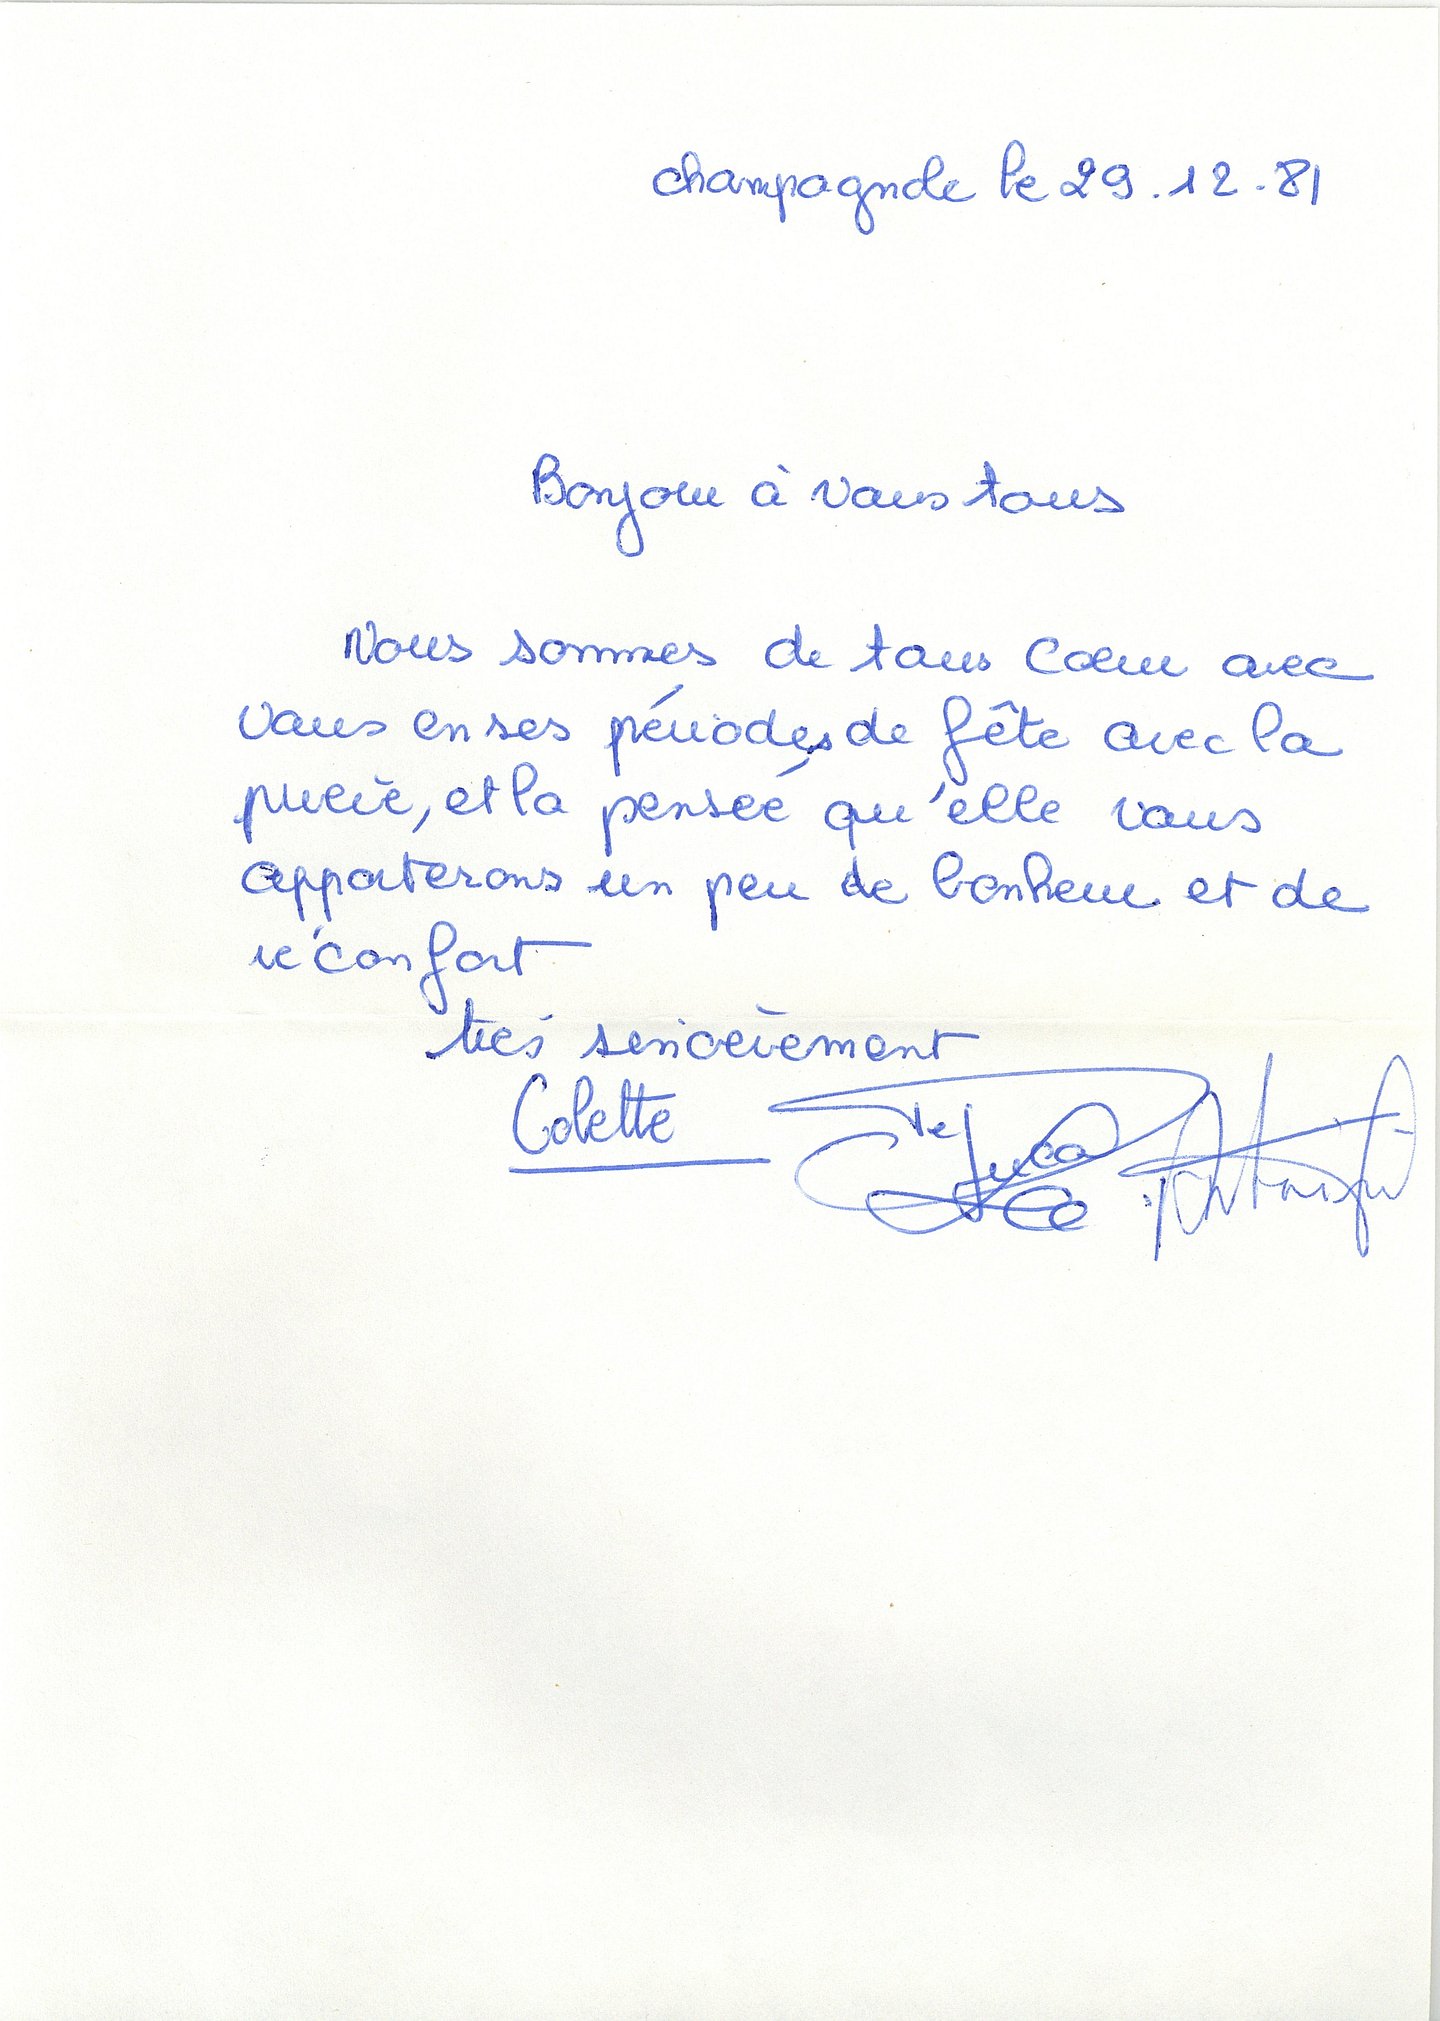 champagnole le 29.12.81
Bonjour à vous tous
Nous sommes de tous coeur avec
vous en ses périodes de fête avec la
prière, et la penseé qu'elle vous
apporterons un peu de bonheur et de
réconfort
trés sincèrement
Colette